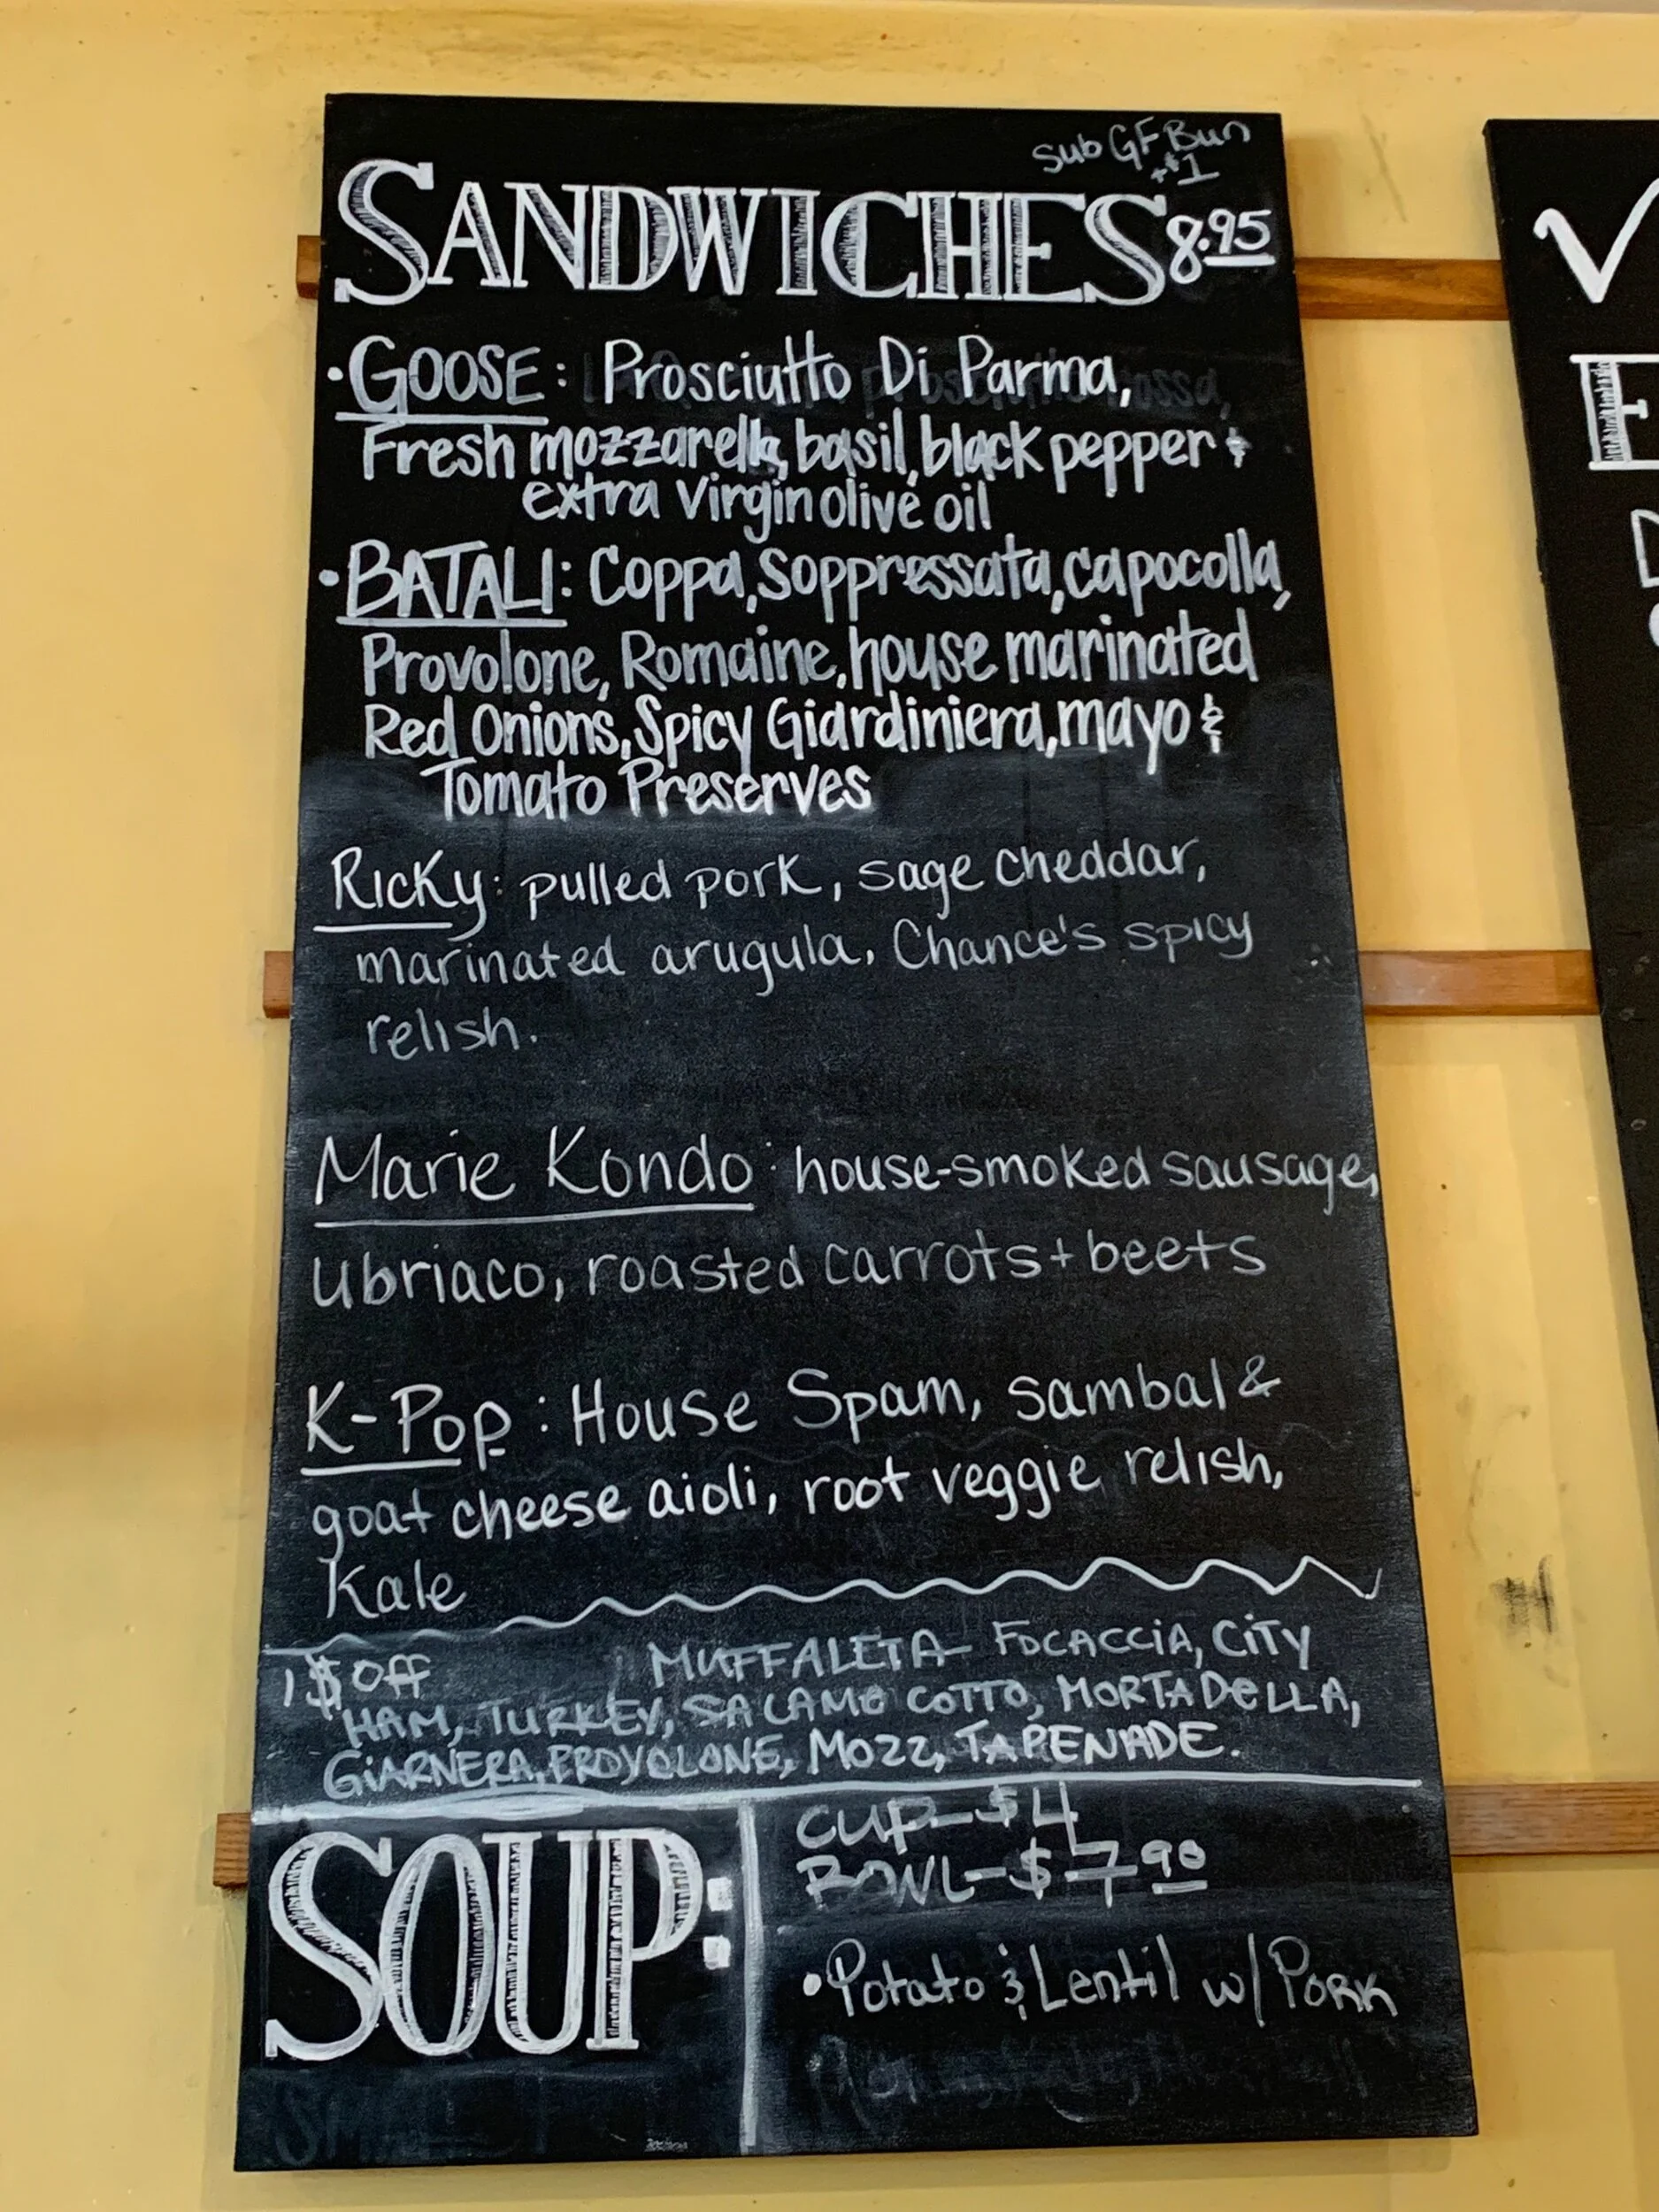 Sub GF Bun
+$1
SANDWICHES 8.95
• GOOSE: Prosciutto Di Parma,
Fresh mozzarella, basil, black pepper &
extra virgin olive oil
• BATALI: Coppa, Soppressata, capocolla,
Provolone, Romaine, house marinated
Red Onions, Spicy Giardiniera, mayo &
Tomato Preserves
Ricky: pulled pork, sage cheddar,
marinated arugula, Chance's spicy
relish.
Marie Kondo: house-smoked sausage,
ubriaco, roasted carrots + beets
K-Pop: House Spam, sambal &
goat cheese aioli, root veggie relish,
Kale
1$ OFF MUFFALETA- FOCACCIA, CITY
HAM, TURKEY, SALAMO COTTO, MORTADELLA,
GIARNERA, PROVOLONE, MOZZ, TAPENADE.
SOUP:
CUP-$4
BOWL-$7.90
• Potato & Lentil w/ PORK